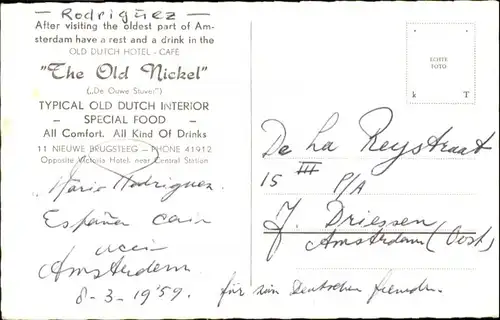 - Rodriguez -
After visiting the oldest part of Am-
sterdam have a rest and a drink in the
OLD DUTCH HOTEL - CAFÉ
"The Old Nickel"
(„De Ouwe Stuver")
TYPICAL OLD DUTCH INTERIOR
- SPECIAL FOOD -
All Comfort. All Kind Of Drinks
11 NIEUWE BRUGSTEEG - PHONE 41912
Opposite Victoria Hotel: near Central Station
Mario Rodriguez
España
Amsterdam
8-3-1959.
ECHTE
FOTO
k T
De La Reystraat
15 III
P/A
J. Driessen
Amsterdam (Oost)
für Deutschen